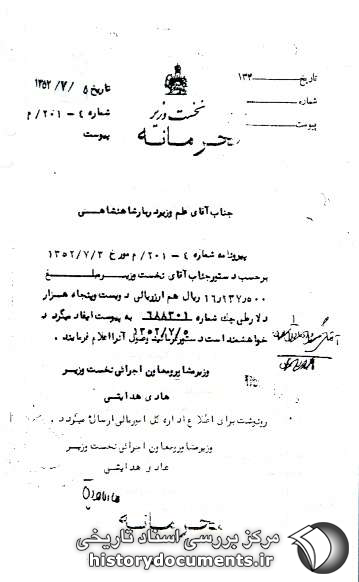 تاریخ ۱۳۴
شماره
پیوست
نخست وزیر
محرمانه
تاریخ ۵ /۷/ ۱۳۵۲
شماره ۴ – ۲۰۱/م
پیوست
جناب آقای علم وزیر دربار شاهنشاهی
پیرو نامه شماره ۴ – ۲۰۱/م مورخ ۱۳۵۲/۷/۳
برحسب دستور جناب آقای نخست وزیر مبلغ
۱۶٫۲۳۷٫۵۰۰ ریال هم ارز ریالی دویست و پنجاه هزار
دلار طی چک شماره ۶۸۸۳۰۱ به پیوست ایفاد میگردد
خواهشمند است دستور فرمائید وصول آنرا اعلام فرمایند .
۱۳۵۲/۷/۵
وزیر مشاور و معاون اجرائی نخست وزیر
هادی هدایتی
رونوشت برای اطلاع اداره کل امور مالی ارسال میگردد .
وزیر مشاور و معاون اجرائی نخست وزیر
هادی هدایتی
محرمانه
مرکز بررسی اسناد تاریخی
historydocuments.ir